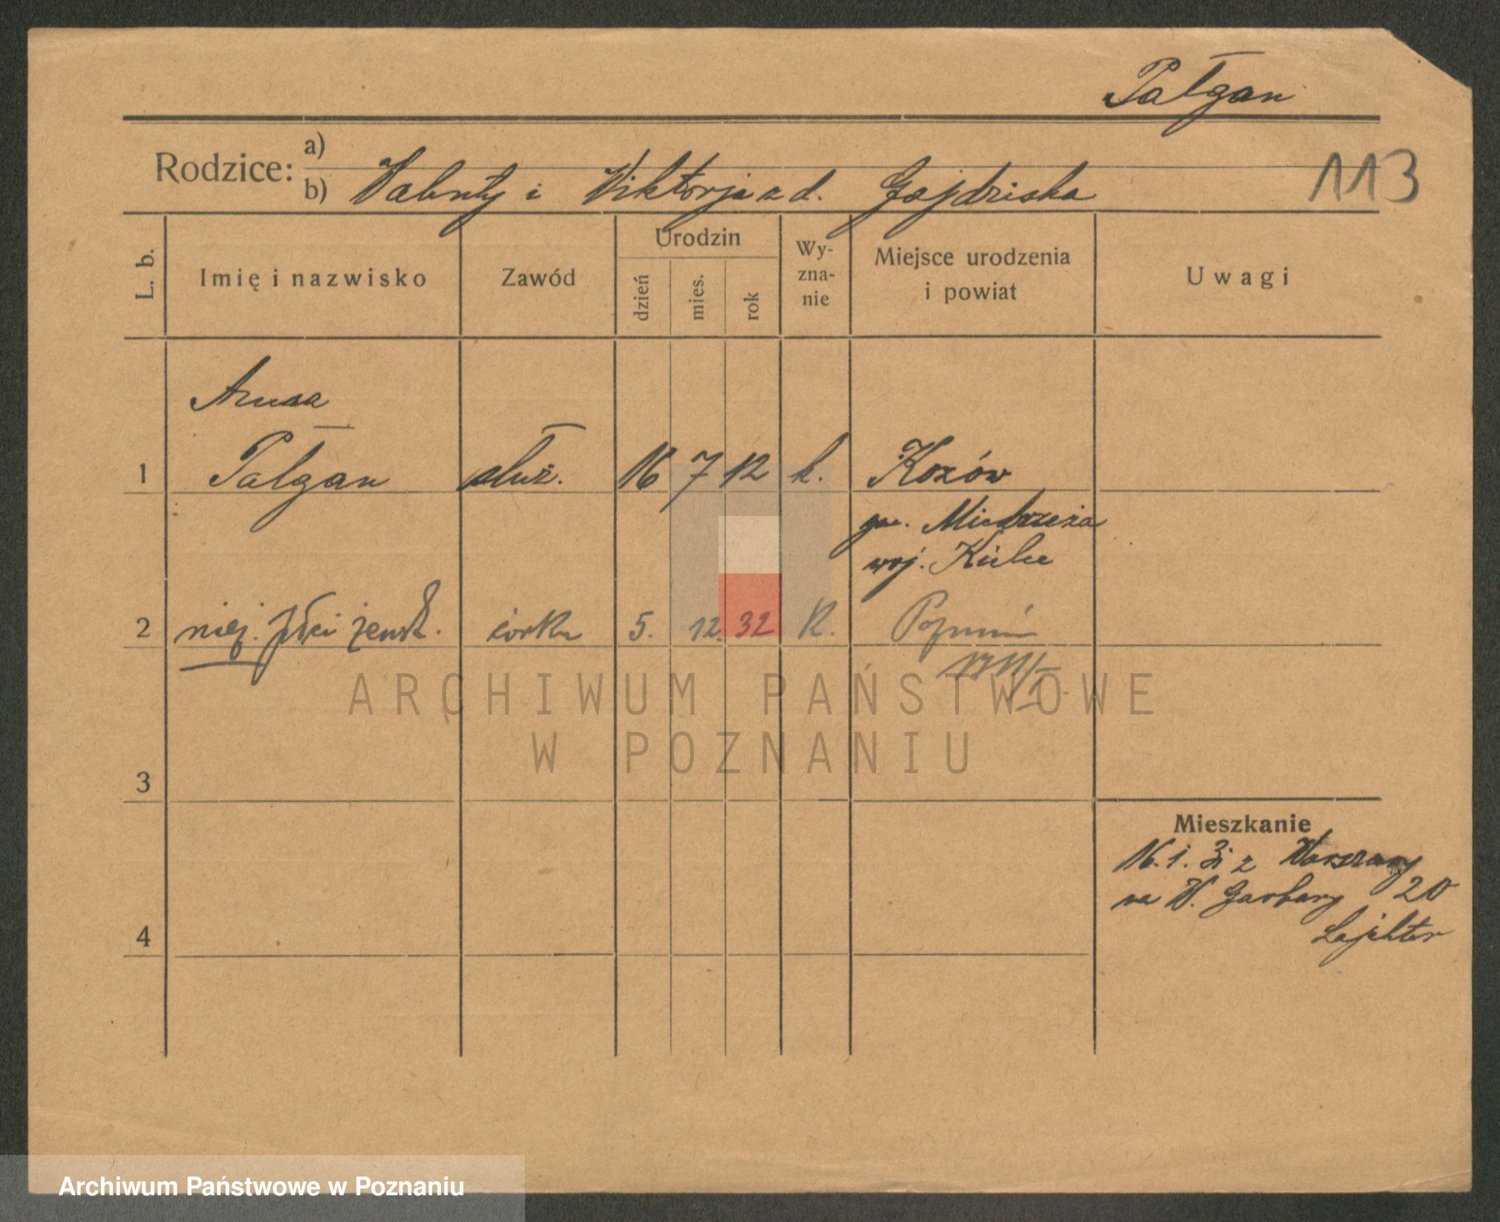 Pałgan
Rodzice: a)
b) Walenty i Wiktorja z d. Gajdzinska
113
L. b.
Imię i nazwisko
Zawód
Urodzin
dzień
mies.
rok
Wy-
zna-
nie
Miejsce urodzenia
i powiat
Uwagi
Anna
1 Pałgan służ. 16 7 12 k. Kozów
gm.
woj. Kielce
2 niej. płci żensk. córka 5. 12. 32 K. Poznań
ARCHIWUM PAŃSTWOWE
W POZNANIU
3
Mieszkanie
16. 1. 31 z Warszawy
na W. Garbary 20
4
Archiwum Państwowe w Poznaniu